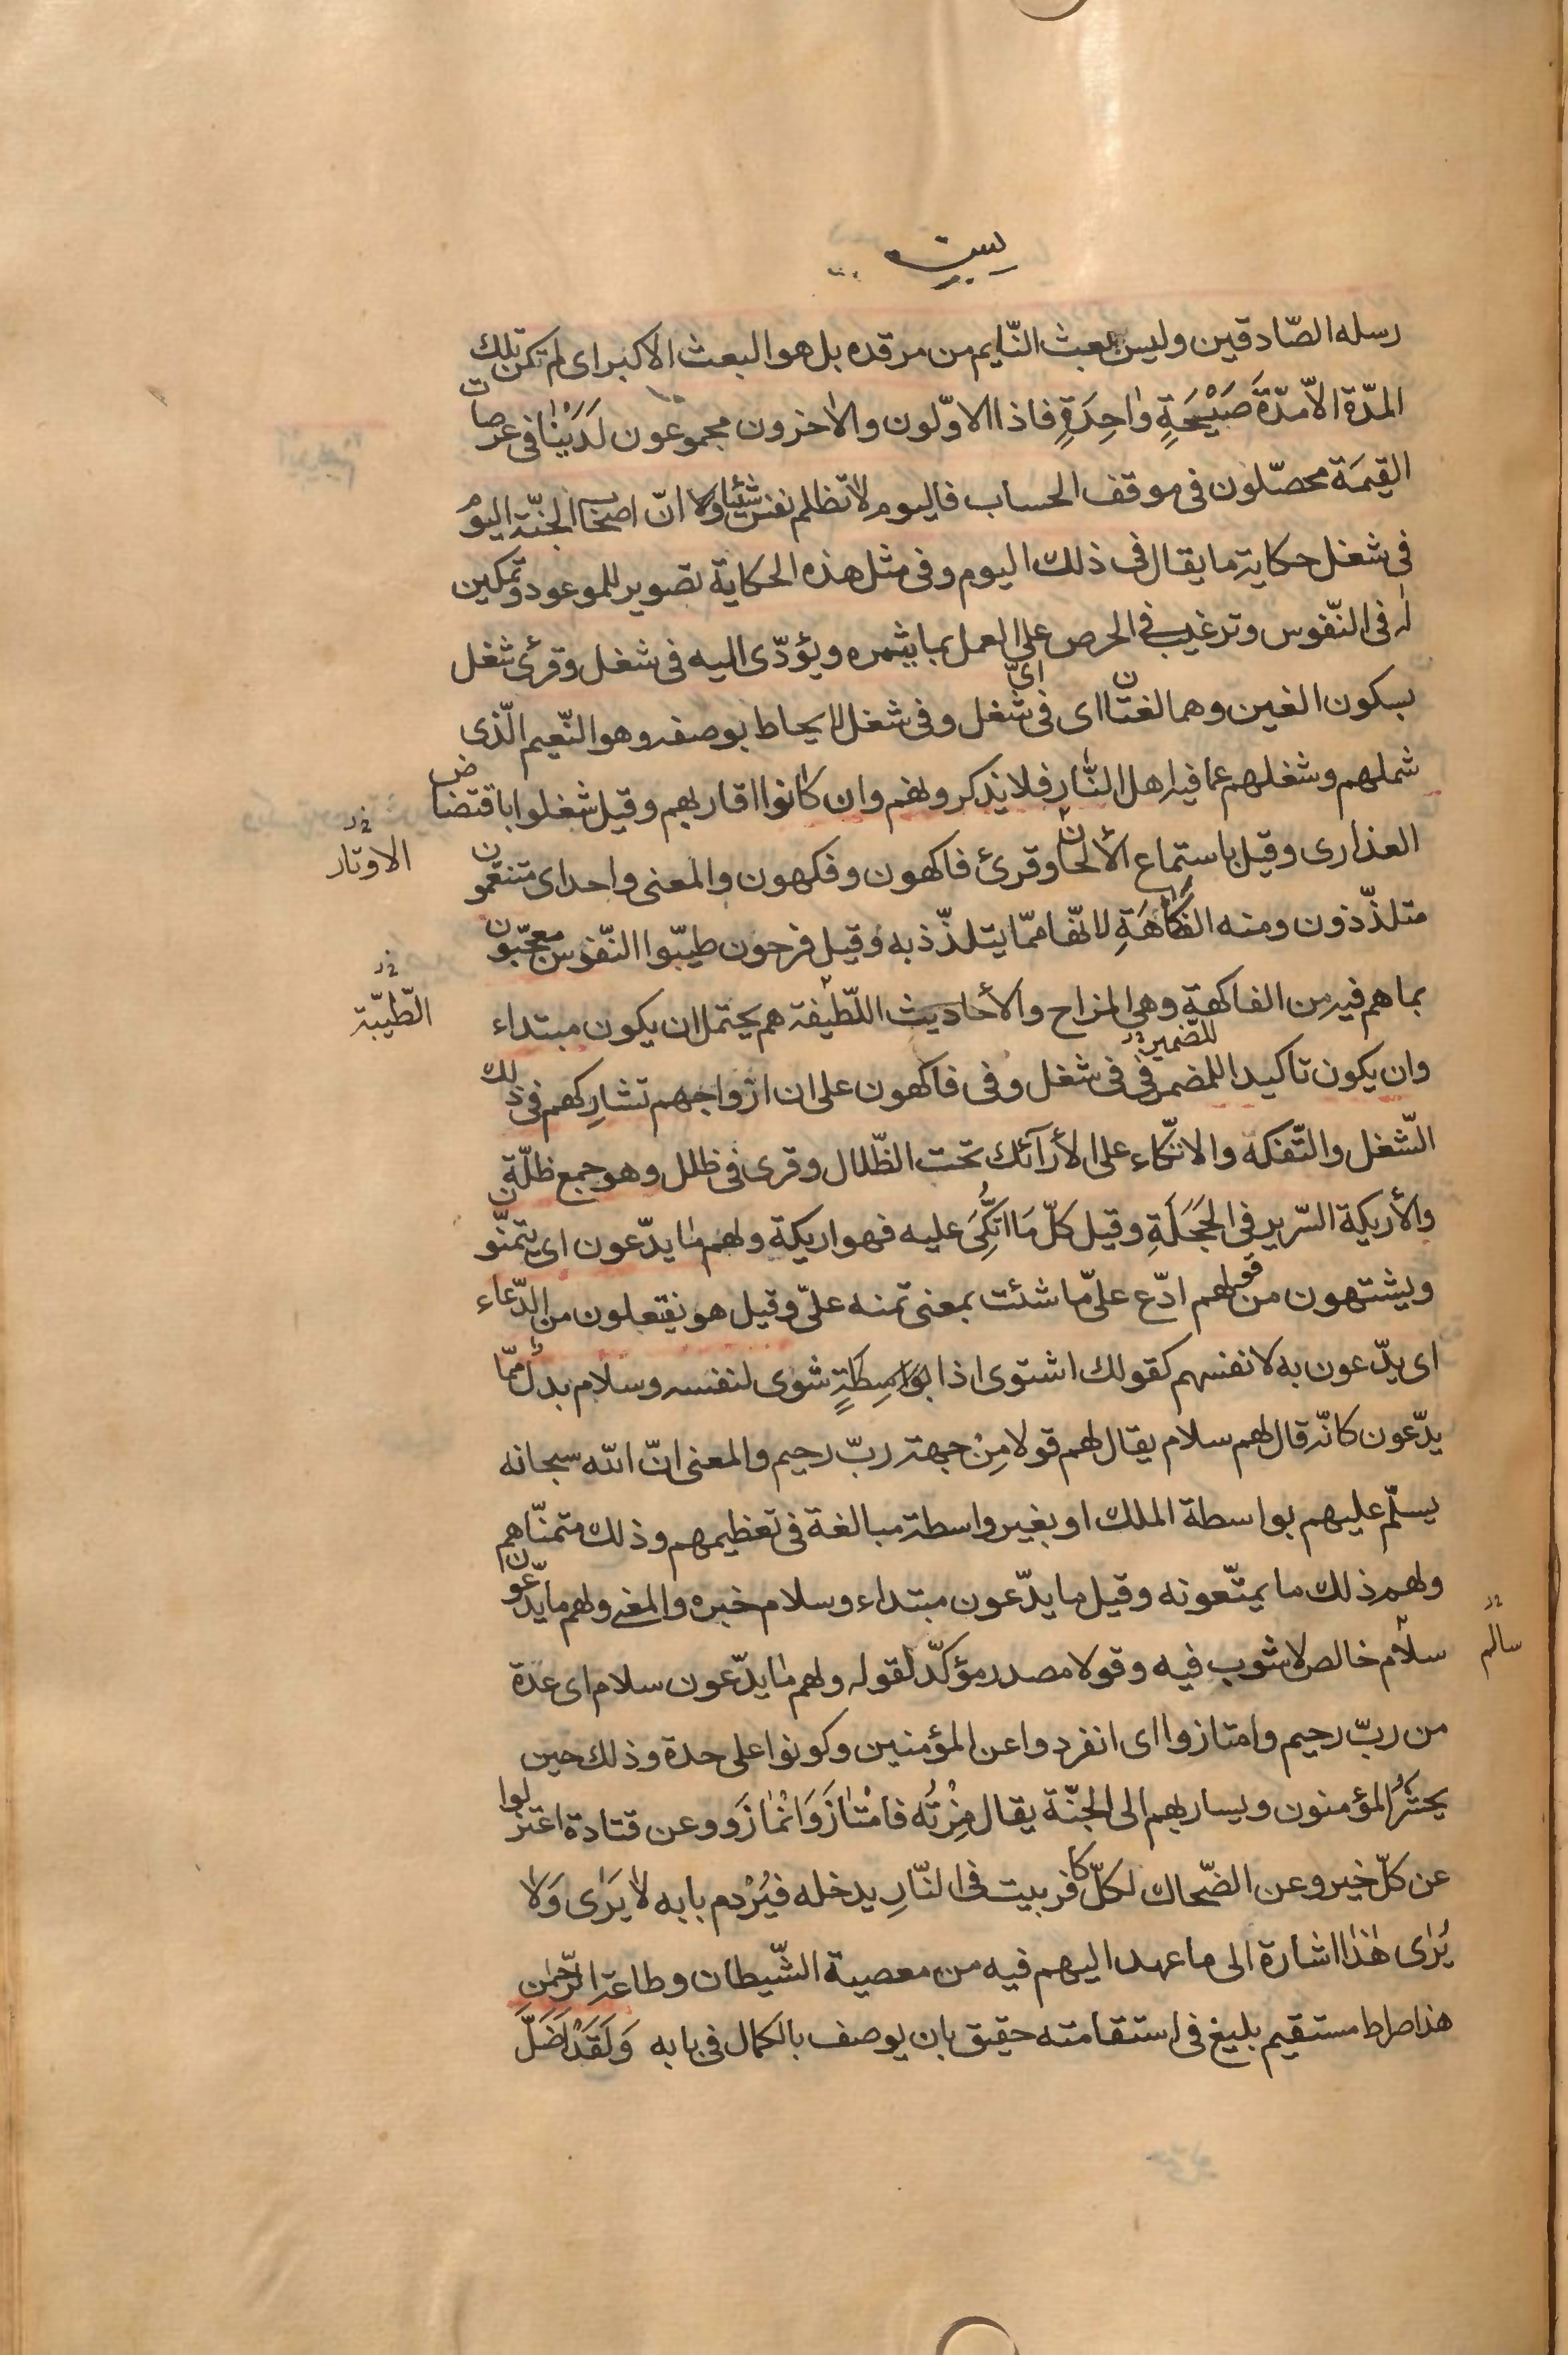 يس
رسله الصّادقين وليس بعث النّايم من مرقده بل هو البعث الاكبر اى لم تكن تلك
المدّة الاّ مدّة صَيْحَةٍ وٰاحِدَةٍ فاذا الاوّلون والاٰخرون مجموعون لَدَيْنٰا فى عرصات
القيٰمَة محصّلون فى موقف الحساب فاليوم لا تظلم نفس شيئا ولا انّ اصحٰاب الجنّة اليوم
فى شغل حكاية ما يقال فى ذلك اليوم وفى مثل هذه الحكاية تصوير للموعود وتمكين
له فى النّفوس وترغيب فى الحرص على العمل بما يثمره ويؤدّى اليه فى شغل وقرئ شغل
بسكون الغين وهما لغتان اى فى اىّ شغل وفى شغل لا يحاط بوصفه وهو النّعيم الّذى
شملهم وشغلهم عما فيه اهل النّٰار فلا يذكرونهم وان كٰانوا اقاربهم وقيل شغلوا باقتضاض
العذارى وقيل باستماع الألحان وقرئ فاكهون وفكهون والمعنى واحد اى متنعّمون
الاوتار
متلذّذون ومنه الفكٰاهَةِ لانّها ممّا يتلذّذ به وقيل فرحون طيّبوا النّفوس معجبون
بما هم فيه من الفاكهة وهى المزاح والأحاديث اللّطيفة هم يحتمل ان يكون مبتداء
الطّيّبة
وان يكون تاكيدا للمضمر فى فى شغل وفى فاكهون على ان ازواجهم تشاركهم فى ذلك
للضمير
الشّغل والتّفكه والاتّكاء على الأرآئك تحت الظّلال وقرى فى ظلل وهو جمع ظلّة
والأريكة السّرير فى الحَجَلَةِ وقيل كلّ مَا اتُّكِىَ عليه فهو اريكة ولهم مٰا يدّعون اى يتمنّون
ويشتهون من قولهم ادّع علىّ ما شئت بمعنى تمنه علىّ وقيل هو يفتعلون من الدّعاء
اى يدّعون به لانفسهم كقولك اشتوى اذا شوى لنفسه وسلام بدل ممّا
يدّعون كانّه قال لهم سلام يقال لهم قولا مِنْ جهة ربّ رحيم والمعنى انّ الله سبحانه
يسلّم عليهم بواسطة الملك او بغير واسطة مبالغة فى تعظيمهم وذلك متمنّاهم
ولهم ذلك ما يمتّعونه وقيل ما يدّعون مبتداء وسلام خبره والمعنى ولهم ما يدّعون
سلام خالص لا شوب فيه وقولا مصدر مؤكدّ لقوله ولهم مٰا يدّعون سلام اى عدة
سالم
من ربّ رحيم وامتازوا اى انفردوا عن المؤمنين وكونوا على حدة وذلك حين
يحشرُ المؤمنون ويسار بهم الى الجنّة يقال مِزْتُه فامْتٰازَ وَانْمٰازَ وعن قتادة اعتزلوا
عن كلّ خير وعن الضّحاك لكلّ كافر بيت فى النّارِ يدخله فيُرْدم بابه لاٰ يَرٰى وَلاٰ
يُرٰى هٰذا اشارة الى ما عهد اليهم فيه من معصية الشّيطان وطاعة الرّحمٰن
هذا صراط مستقيم بليغ فى استقامته حقيق بان يوصف بالكمال فى بابه وَلَقَدْ اَضَلَّ